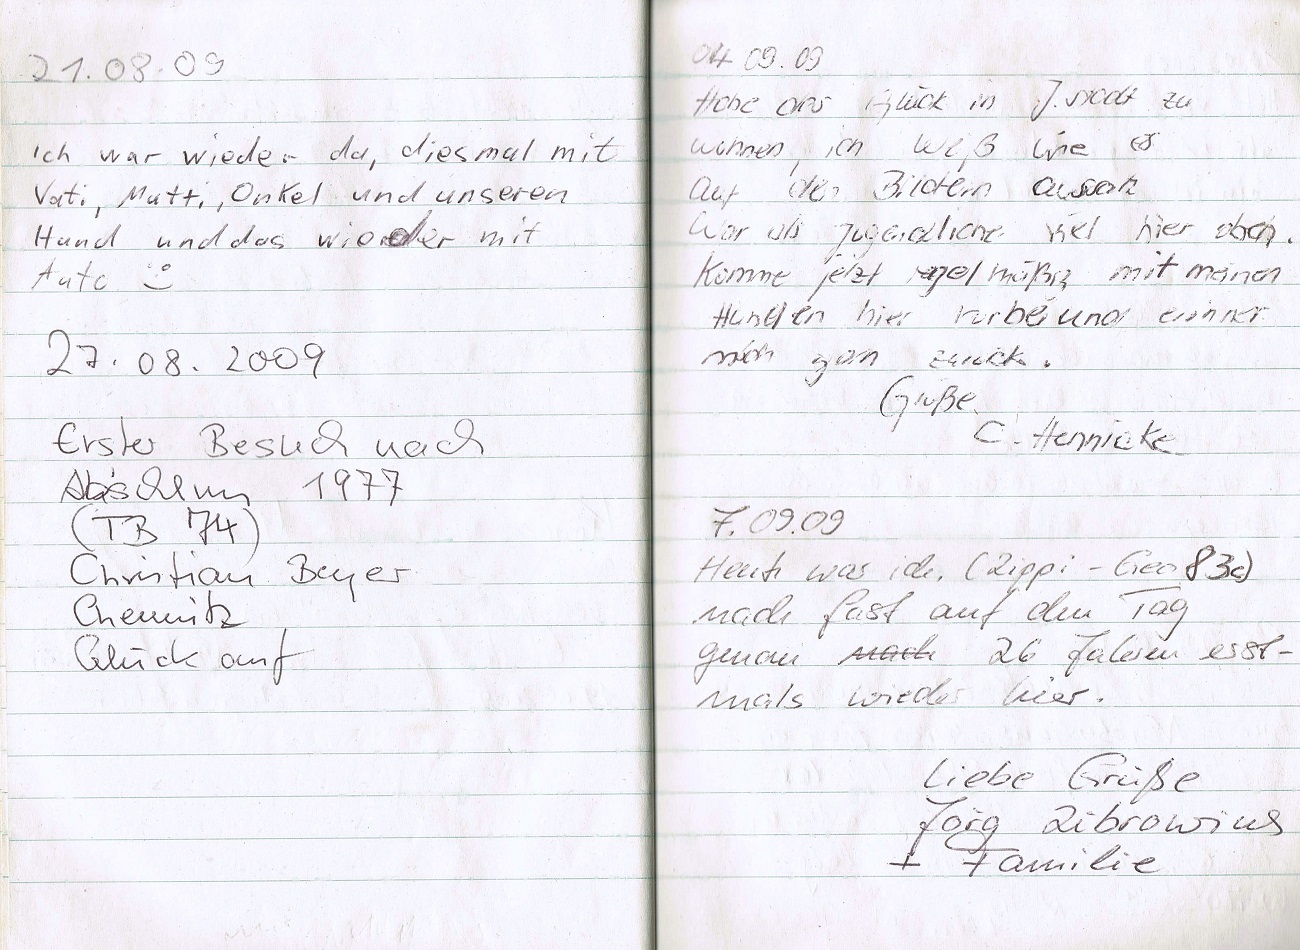 21.08.09
Ich war wieder da, diesmal mit
Vati, Mutti, Onkel und unseren
Hund und das wieder mit
Auto
27.08.2009
Erster Besuch nach
Abschluss 1977
(TB 74)
Christian Beyer
Chemnitz
Glück auf
04.09.09
Habe das Glück in J.stadt zu
wohnen, ich weiß wie es
auf den Bildern aussah
War als Jugendliche viel hier oben.
Komme jetzt regelmäßig mit meinen
Hunden hier vorbei und erinner
mich gern zurück.
Grüße
C. Hennicke
7.09.09
Heute war ich (Zippi - Geo 83c)
nach fast auf den Tag
genau nach 26 Jahren erst-
mals wieder hier.
Liebe Grüße
Jörg Zibrowius
+ Familie